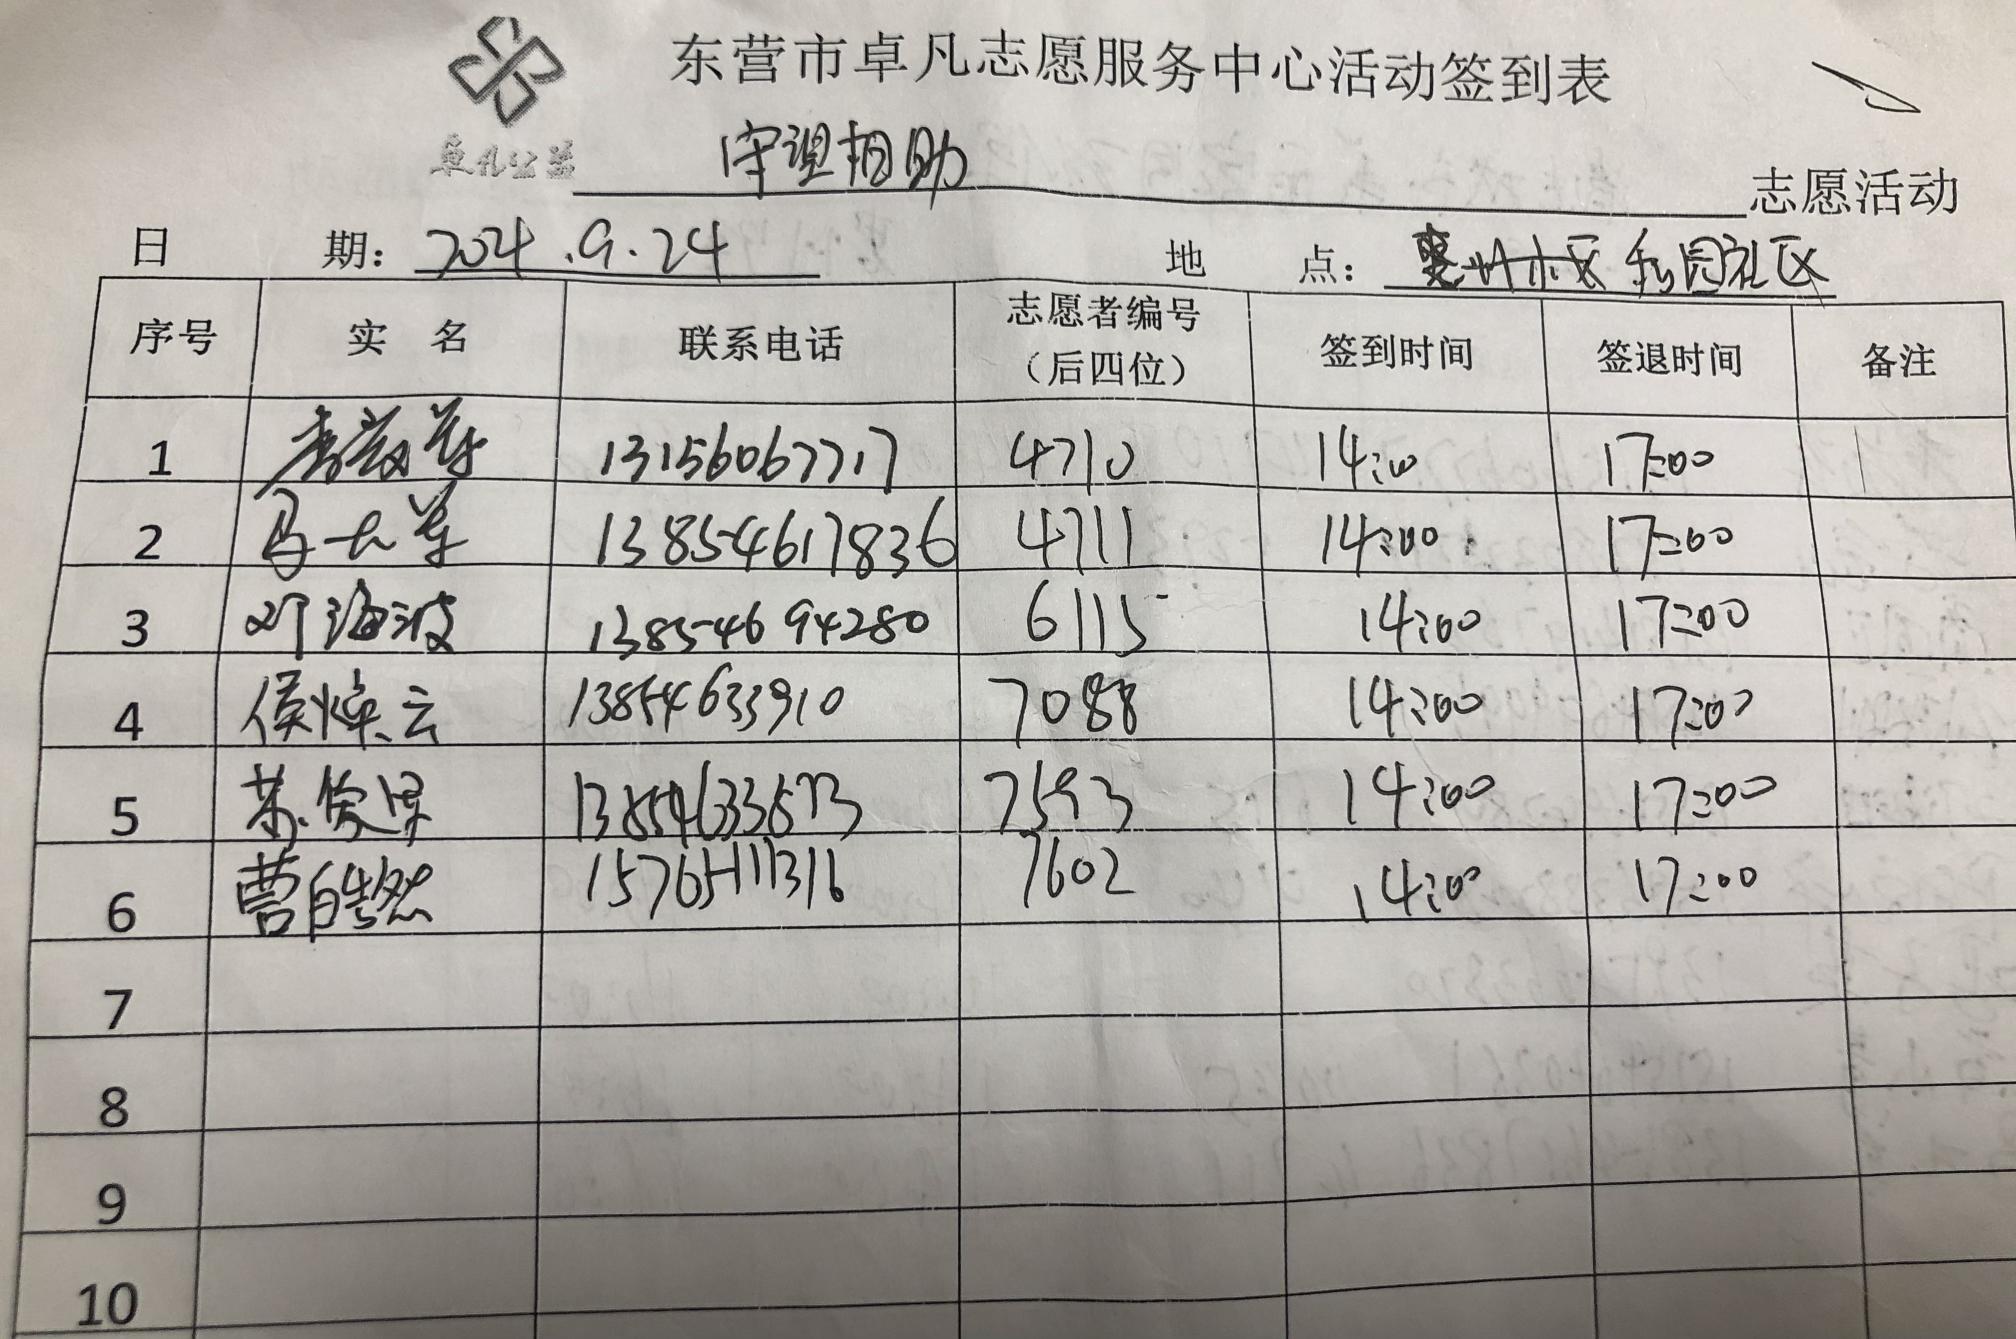 东营市卓凡志愿服务中心活动签到表
卓凡公益
守望相助 志愿活动
日 期: 2024.9.24 地 点: 园社区
序号 实 名 联系电话 志愿者编号（后四位） 签到时间 签退时间 备注
1 13156067717 4710 14:00 17:00
2 马 军 13854617836 4711 14:00 17:00
3 邓海波 13854694280 6115 14:00 17:00
4 侯焕云 13854633910 7088 14:00 17:00
5 苏俊杲 13854633573 7593 14:00 17:00
6 曹皓然 15765111316 7602 14:00 17:00
7
8
9
10